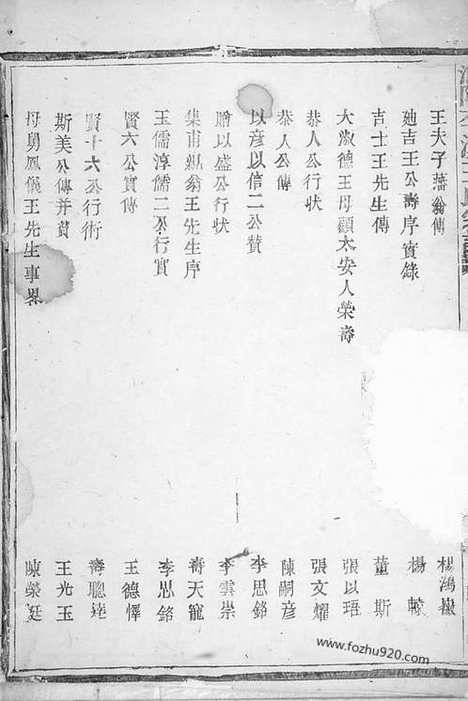 王夫子藩翁傳 楊鴻嶽
吉王公壽序實錄 楊
吉士王先生傳 董斯
大淑德王母顧太安人榮壽 張以珸
恭人公行狀 張文耀
恭人公傳 陳嗣彦
以彦以信二公贊 李思銘
贈以盛公行狀 李雲崇
集甫 翁王先生序 壽天寵
玉儒淳儒二公行實 李思銘
賢六公實傳 王德懌
賢十六公行術 壽聰
斯美公傳并贊 王光玉
母舅鳳儀王先生事畧 陳榮廷
www.fozhu920.com